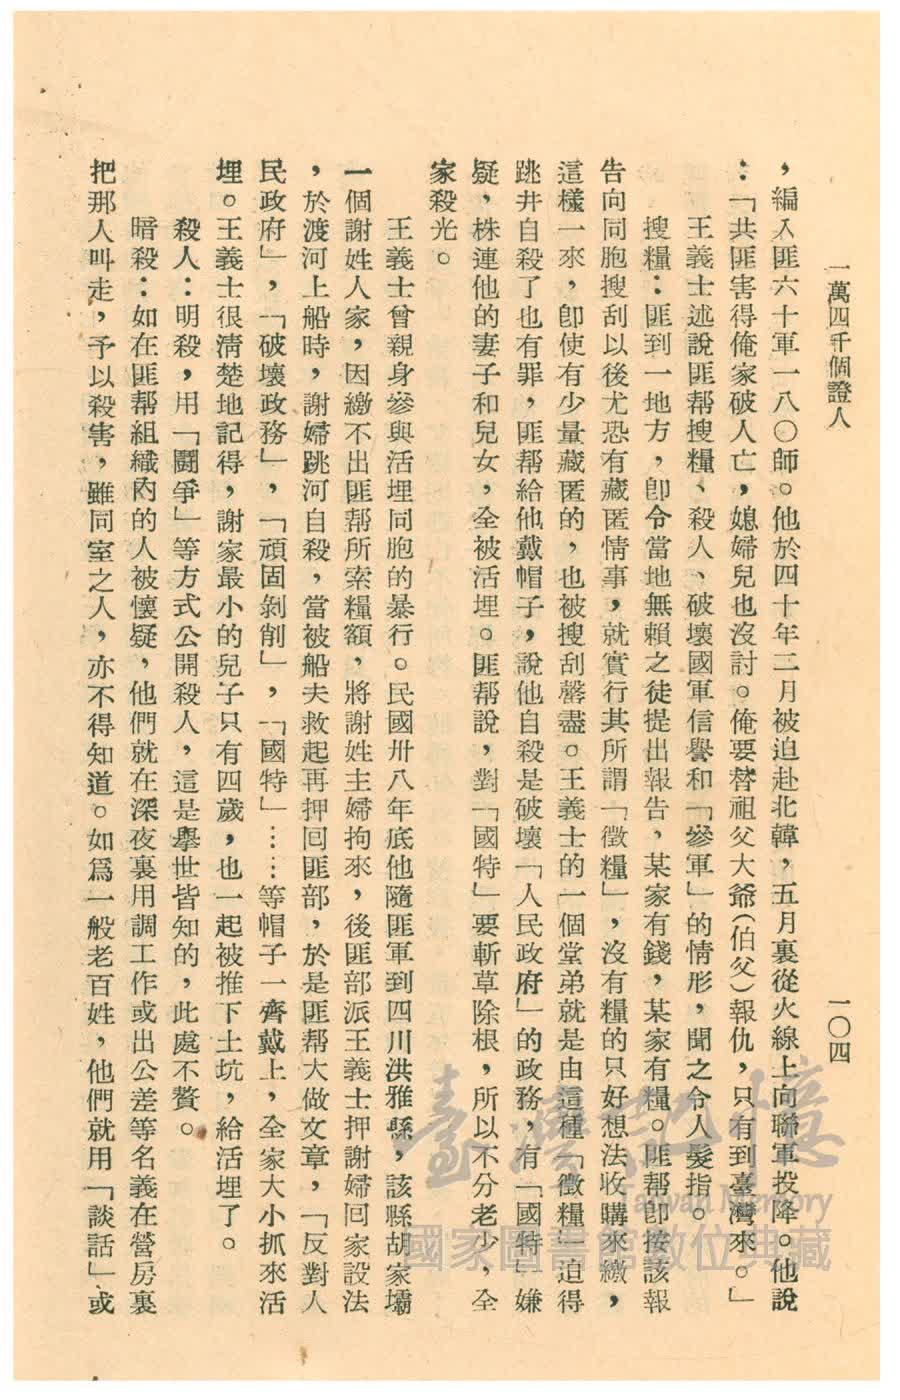 一萬四千個證人
一〇四
，編入匪六十軍一八〇師。他於四十年二月被迫赴北韓，五月裏從火線上向聯軍投降。他說
：「共匪害得俺家破人亡，媳婦兒也沒討。俺要替祖父大爺（伯父）報仇，只有到臺灣來。」
王義士述說匪帮搜糧、殺人、破壞國軍信譽和「參軍」的情形，聞之令人髮指。
搜糧：匪到一地方，卽令當地無賴之徒提出報告，某家有錢，某家有糧。匪帮卽按該報
告向同胞搜刮以後尤恐有藏匿情事，就實行其所謂「徵糧」，沒有糧的只好想法收購來繳，
這樣一來，卽使有少量藏匿的，也被搜刮罄盡。王義士的一個堂弟就是由這種「徵糧」迫得
跳井自殺了也有罪，匪帮給他戴帽子，說他自殺是破壞「人民政府」的政務，有「國特」嫌
疑，株連他的妻子和兒女，全被活埋。匪帮說，對「國特」要斬草除根，所以不分老少，全
家殺光。
王義士曾親身參與活埋同胞的暴行。民國卅八年底他隨匪軍到四川洪雅縣，該縣胡家壩
一個謝姓人家，因繳不出匪帮所索糧額，將謝姓主婦拘來，後匪部派王義士押謝婦回家設法
，於渡河上船時，謝婦跳河自殺，當被船夫救起再押回匪部，於是匪帮大做文章，「反對人
民政府」，「破壞政務」，「頑固剝削」，「國特」……等帽子一齊戴上，全家大小抓來活
埋。王義士很淸楚地記得，謝家最小的兒子只有四歲，也一起被推下土坑，給活埋了。
殺人：明殺，用「鬪爭」等方式公開殺人，這是舉世皆知的，此處不贅。
暗殺：如在匪帮組織內的人被懷疑，他們就在深夜裏用調工作或出公差等名義在營房裏
把那人叫走，予以殺害，雖同室之人，亦不得知道。如爲一般老百姓，他們就用「談話」或
臺灣記憶
Taiwan Memory
國家圖書館數位典藏